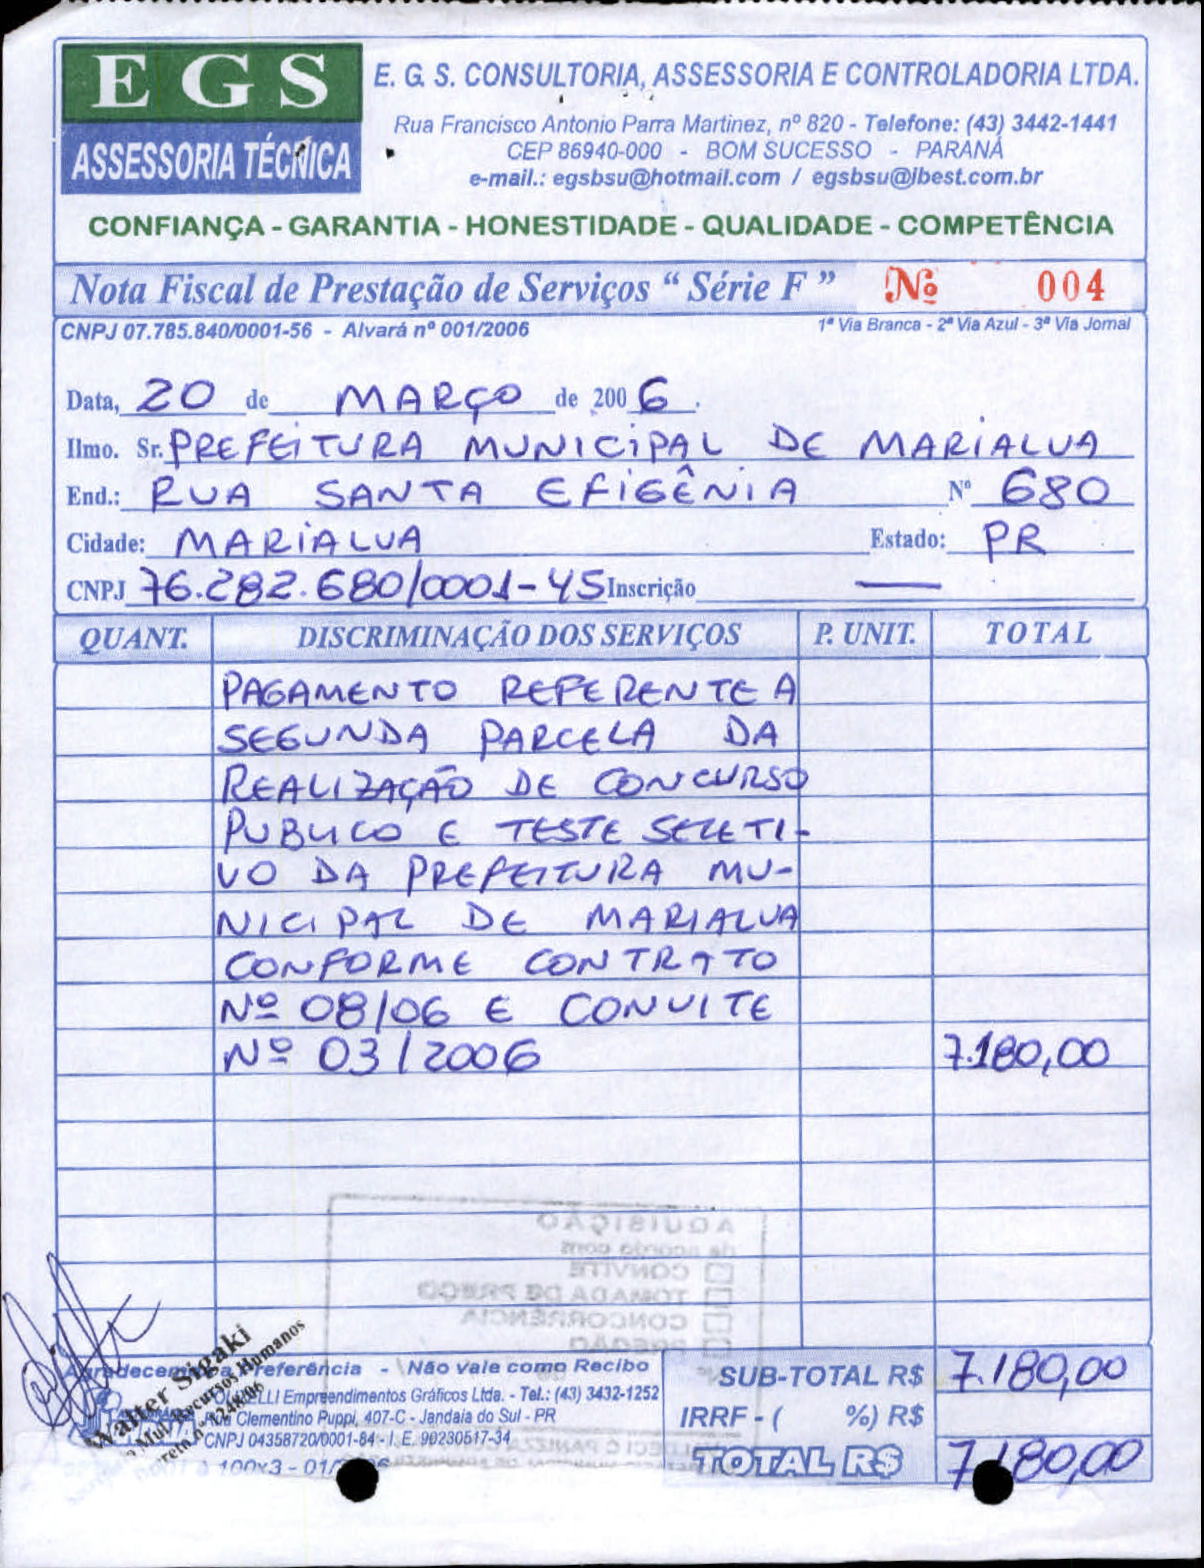 EGS
ASSESSORIA TÉCNICA
E. G. S. CONSULTORIA, ASSESSORIA E CONTROLADORIA LTDA.
Rua Francisco Antonio Parra Martinez, nº 820 - Telefone: (43) 3442-1441
CEP 86940-000 - BOM SUCESSO - PARANÁ
e-mail.: egsbsu@hotmail.com / egsbsu@lbest.com.br
CONFIANÇA - GARANTIA - HONESTIDADE - QUALIDADE - COMPETÊNCIA
Nota Fiscal de Prestação de Serviços “ Série F ” Nº 004
CNPJ 07.785.840/0001-56 - Alvará nº 001/2006 1ª Via Branca - 2ª Via Azul - 3ª Via Jornal
Data, 20 de MARÇO de 2006.
Ilmo. Sr. PREFEITURA MUNICIPAL DE MARIALVA
End.: RUA SANTA EFIGÊNIA Nº 680
Cidade: MARIALVA Estado: PR
CNPJ 76.282.680/0001-45 Inscrição
QUANT. DISCRIMINAÇÃO DOS SERVIÇOS P. UNIT. TOTAL
PAGAMENTO REFERENTE A
SEGUNDA PARCELA DA
REALIZAÇÃO DE CONCURSO
PUBLICO E TESTE SELETI-
VO DA PREFEITURA MU-
NICIPAL DE MARIALVA
CONFORME CONTRATO
Nº 08/06 E CONVITE
Nº 03/2006 7.180,00
AQUISIÇÃO
de acordo com
CONVITE
TOMADA DE PREÇO
CONCORRÊNCIA
PREGÃO
Walter Sigaki
Recursos Humanos
Preferência - Não vale como Recibo
Empreendimentos Gráficos Ltda. - Tel.: (43) 3432-1252
Clementino Puppi, 407-C - Jandaia do Sul - PR
CNPJ 04358720/0001-84 - I. E. 90230517-34
100x3 - 01/
SUB-TOTAL R$ 7.180,00
IRRF - ( %) R$
TOTAL R$ 7.180,00